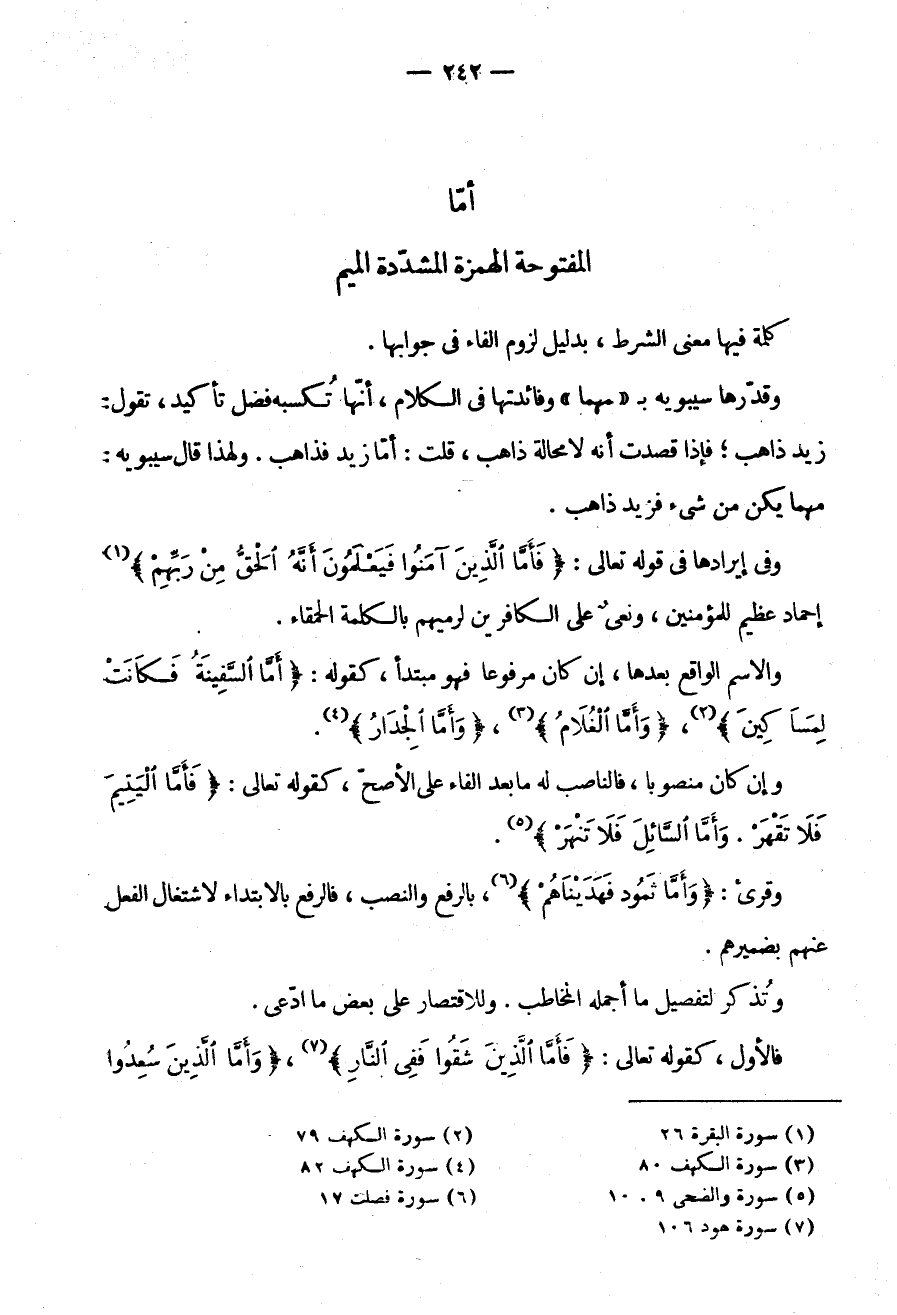 — ٢٤٢ —
أمّا
المفتوحة الهمزة المشدّدة الميم
كلمة فيها معنى الشرط ، بدليل لزوم الفاء فى جوابها .
وقدّرها سيبويه بـ « مهما » وفائدتها فى الكلام ، أنّها تُكسبه فضل تأكيد ، تقول :
زيد ذاهب ؛ فإذا قصدت أنه لا محالة ذاهب ، قلت : أمّا زيد فذاهب . ولهذا قال سيبويه :
مهما يكن من شىء فزيد ذاهب .
وفى إيرادها فى قوله تعالى : ﴿ فَأَمَّا ٱلَّذِينَ آمَنُوا فَيَعْلَمُونَ أَنَّهُ ٱلْحَقُّ مِنْ رَبِّهِمْ ﴾(١)
إحماد عظيم للمؤمنين ، ونعىٌ على الكافرين لرميهم بالكلمة الحمقاء .
والاسم الواقع بعدها ، إن كان مرفوعا فهو مبتدأ ، كقوله : ﴿ أَمَّا ٱلسَّفِينَةُ فَكَانَتْ
لِمَسَاكِينَ ﴾(٢) ، ﴿ وَأَمَّا ٱلْغُلَامُ ﴾(٣) ، ﴿ وَأَمَّا ٱلْجِدَارُ ﴾(٤) .
وإن كان منصوبا ، فالناصب له ما بعد الفاء على الأصحّ ، كقوله تعالى : ﴿ فَأَمَّا ٱلْيَتِيمَ
فَلَا تَقْهَرْ . وَأَمَّا ٱلسَّائِلَ فَلَا تَنْهَرْ ﴾(٥) .
وقرئ : ﴿ وَأَمَّا ثَمُود فَهَدَيْنَاهُمْ ﴾(٦) ، بالرفع والنصب ، فالرفع بالابتداء لاشتغال الفعل
عنهم بضميرهم .
وتُذكر لتفصيل ما أجمله المخاطب . وللاقتصار على بعض ما ادّعى .
فالأول ، كقوله تعالى : ﴿ فَأَمَّا ٱلَّذِينَ شَقُوا فَفِى ٱلنَّارِ ﴾(٧) ، ﴿ وَأَمَّا ٱلَّذِينَ سُعِدُوا
(١) سورة البقرة ٢٦
(٢) سورة الكهف ٧٩
(٣) سورة الكهف ٨٠
(٤) سورة الكهف ٨٢
(٥) سورة والضحى ٩ ، ١٠
(٦) سورة فصلت ١٧
(٧) سورة هود ١٠٦